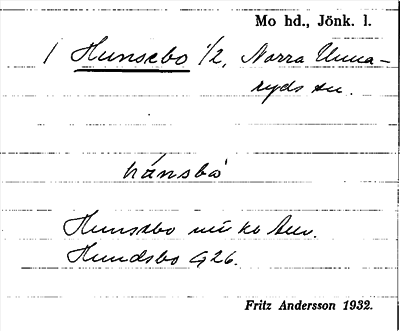 Mo hd., Jönk. l.
/ Hunsebo 1/2, Norra Unna-
ryds sn.
hánsbo
Hunsebo
Hundsbo G26.
Fritz Andersson 1932.